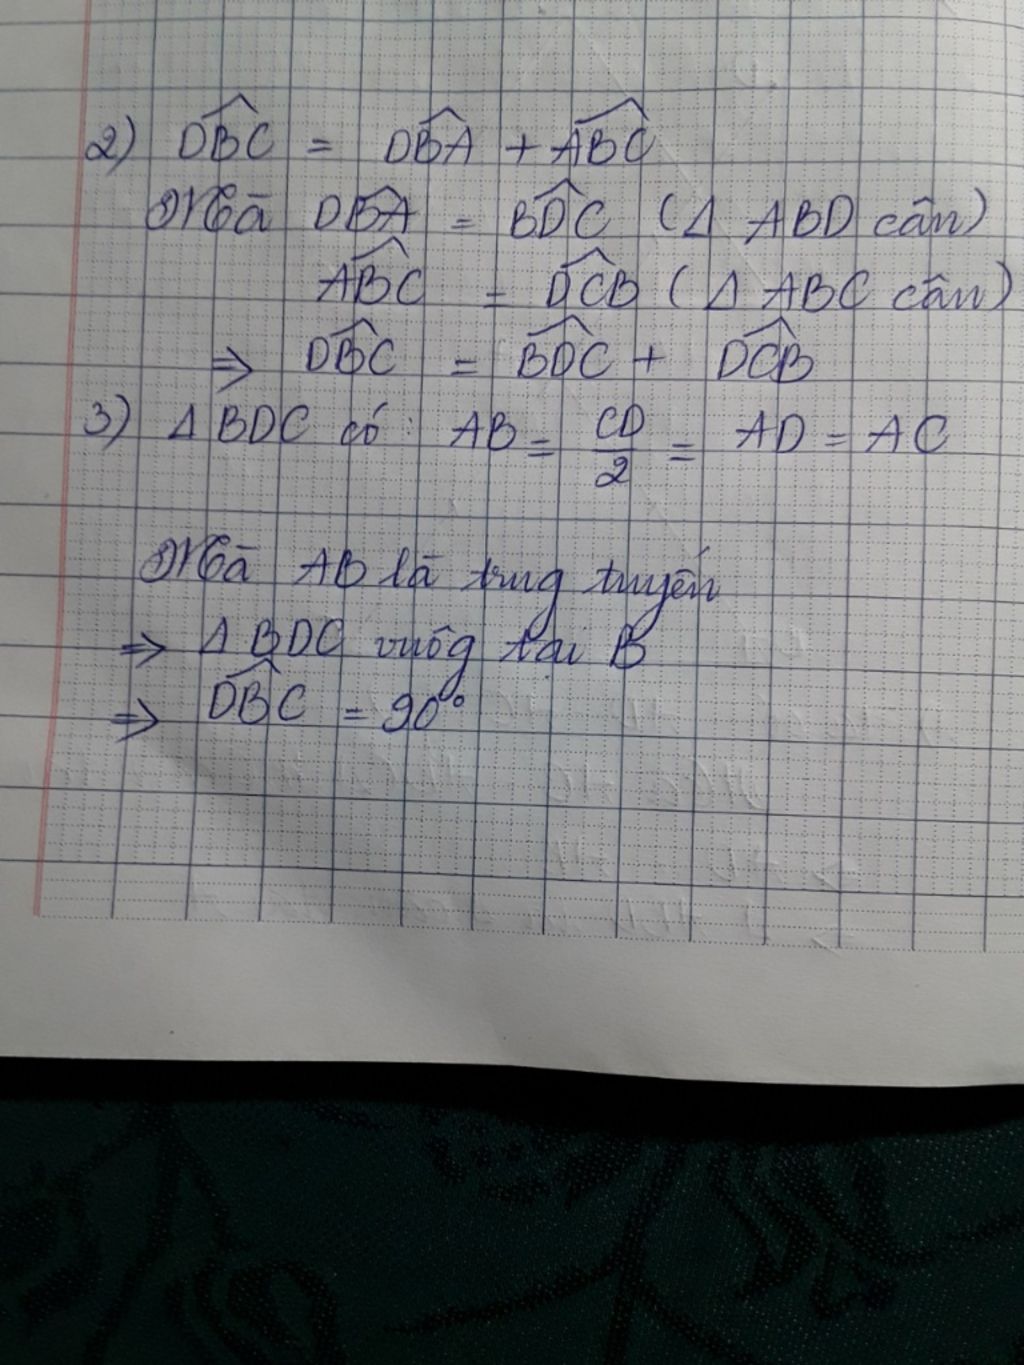 2) DBC = DBA + ABC
Mà DBA = BDC (Δ ABD cân)
ABC = DCB (Δ ABC cân)
⇒ DBC = BDC + DCB
3) Δ BDC có: AB = CD/2 = AD = AC
Mà AB là trug tuyến
⇒ Δ BDC vuôg tại B
⇒ DBC = 90°